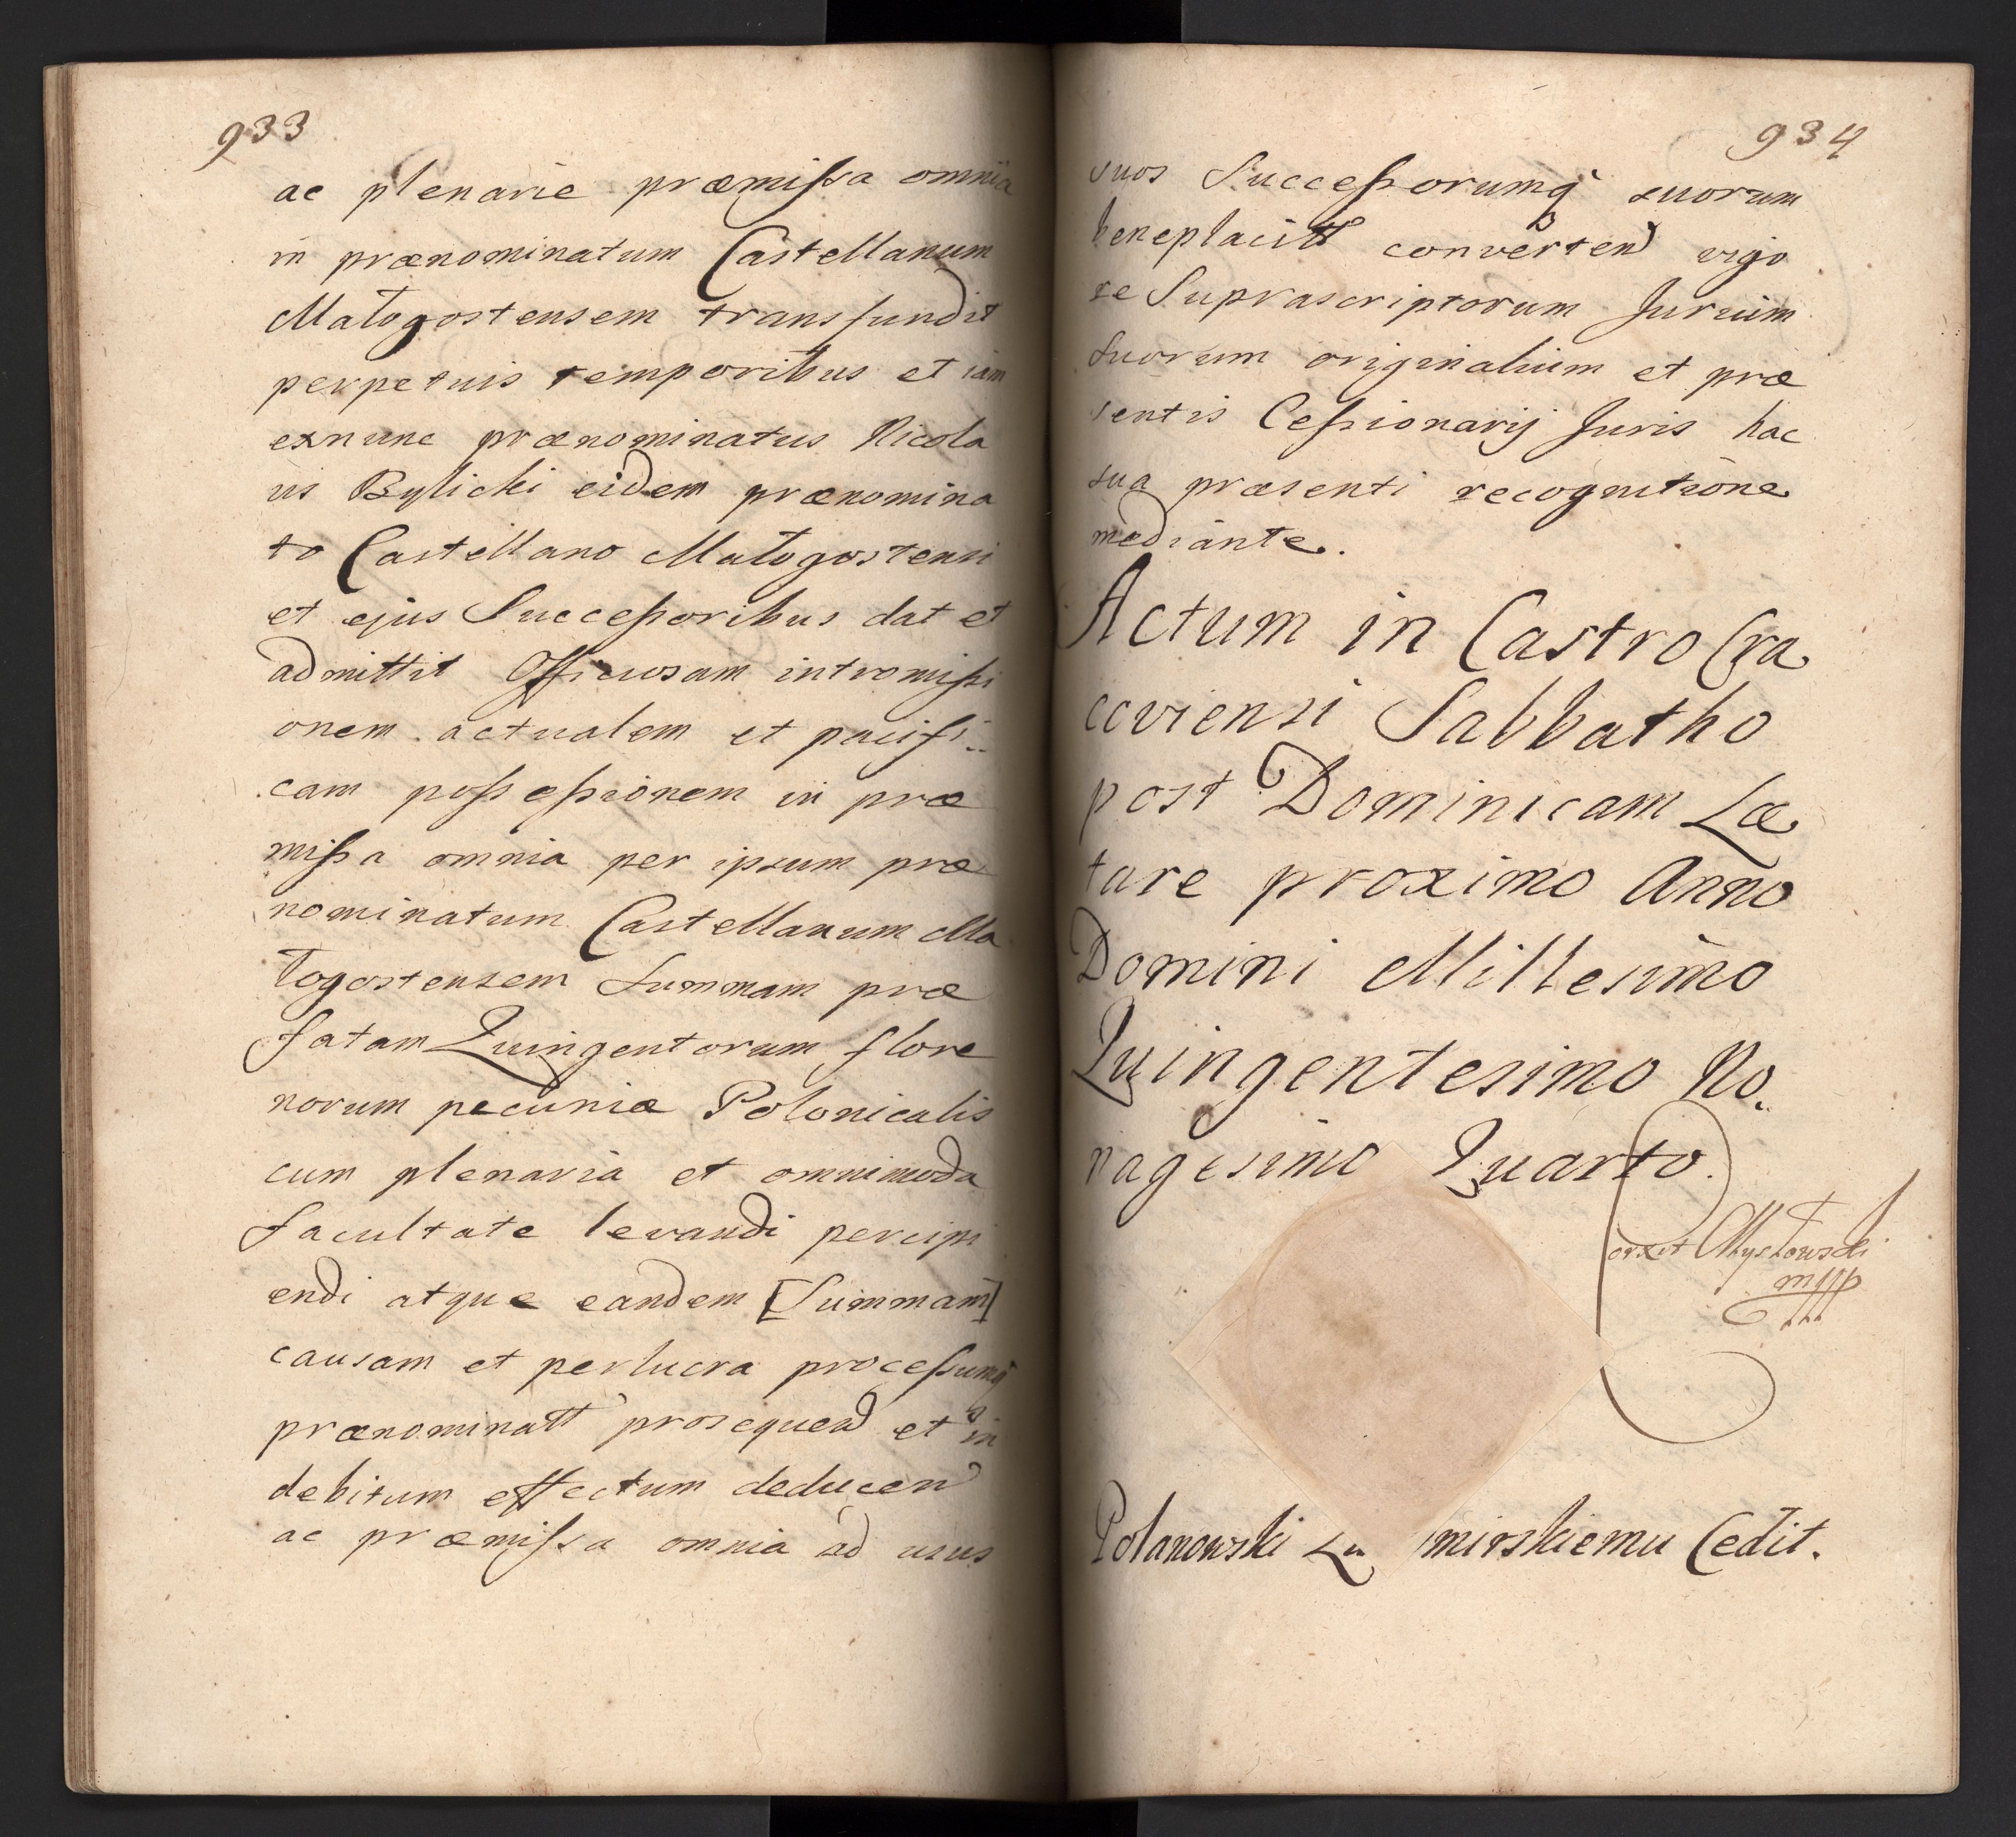 933
ac plenarie præmissa omnia
in prænominatum Castellanum
Małogostensem transfundit
perpetuis temporibus et iam
exnunc prænominatus Nicola
us Bylicki eidem prænomina
to Castellano Małogostensi
et ejus Successoribus dat et
admittit Officiosam intromissi
onem actualem et pacifi..
cam possessionem in præ
missa omnia per ipsum præ
nominatum Castellanum Ma
łogostensem Summam præ
fatam Quingentorum flore
norum pecuniæ Polonicalis
cum plenaria et omnimoda
facultate levandi percipi
endi atque eandem [Summam]
causam et perlucra processumq
prænominatt prosequen et in
debitum effectum deducen
ac præmissa omnia ad usus
934
suos Successorumq suorum
beneplacitt converten vigo
re Suprascriptorum Jurium
Suorum originalium et præ
sentis Cessionarij Juris hac
sua præsenti recognitione
mediante.
Actum in Castro Cra
coviensi Sabbatho
post Dominicam Læ
tare proximo Anno
Domini Millesimo
Quingentesimo No..
nagesimo Quarto.
Mysłowski
mpp
Polanowski Lu mirskiemu Cedit.